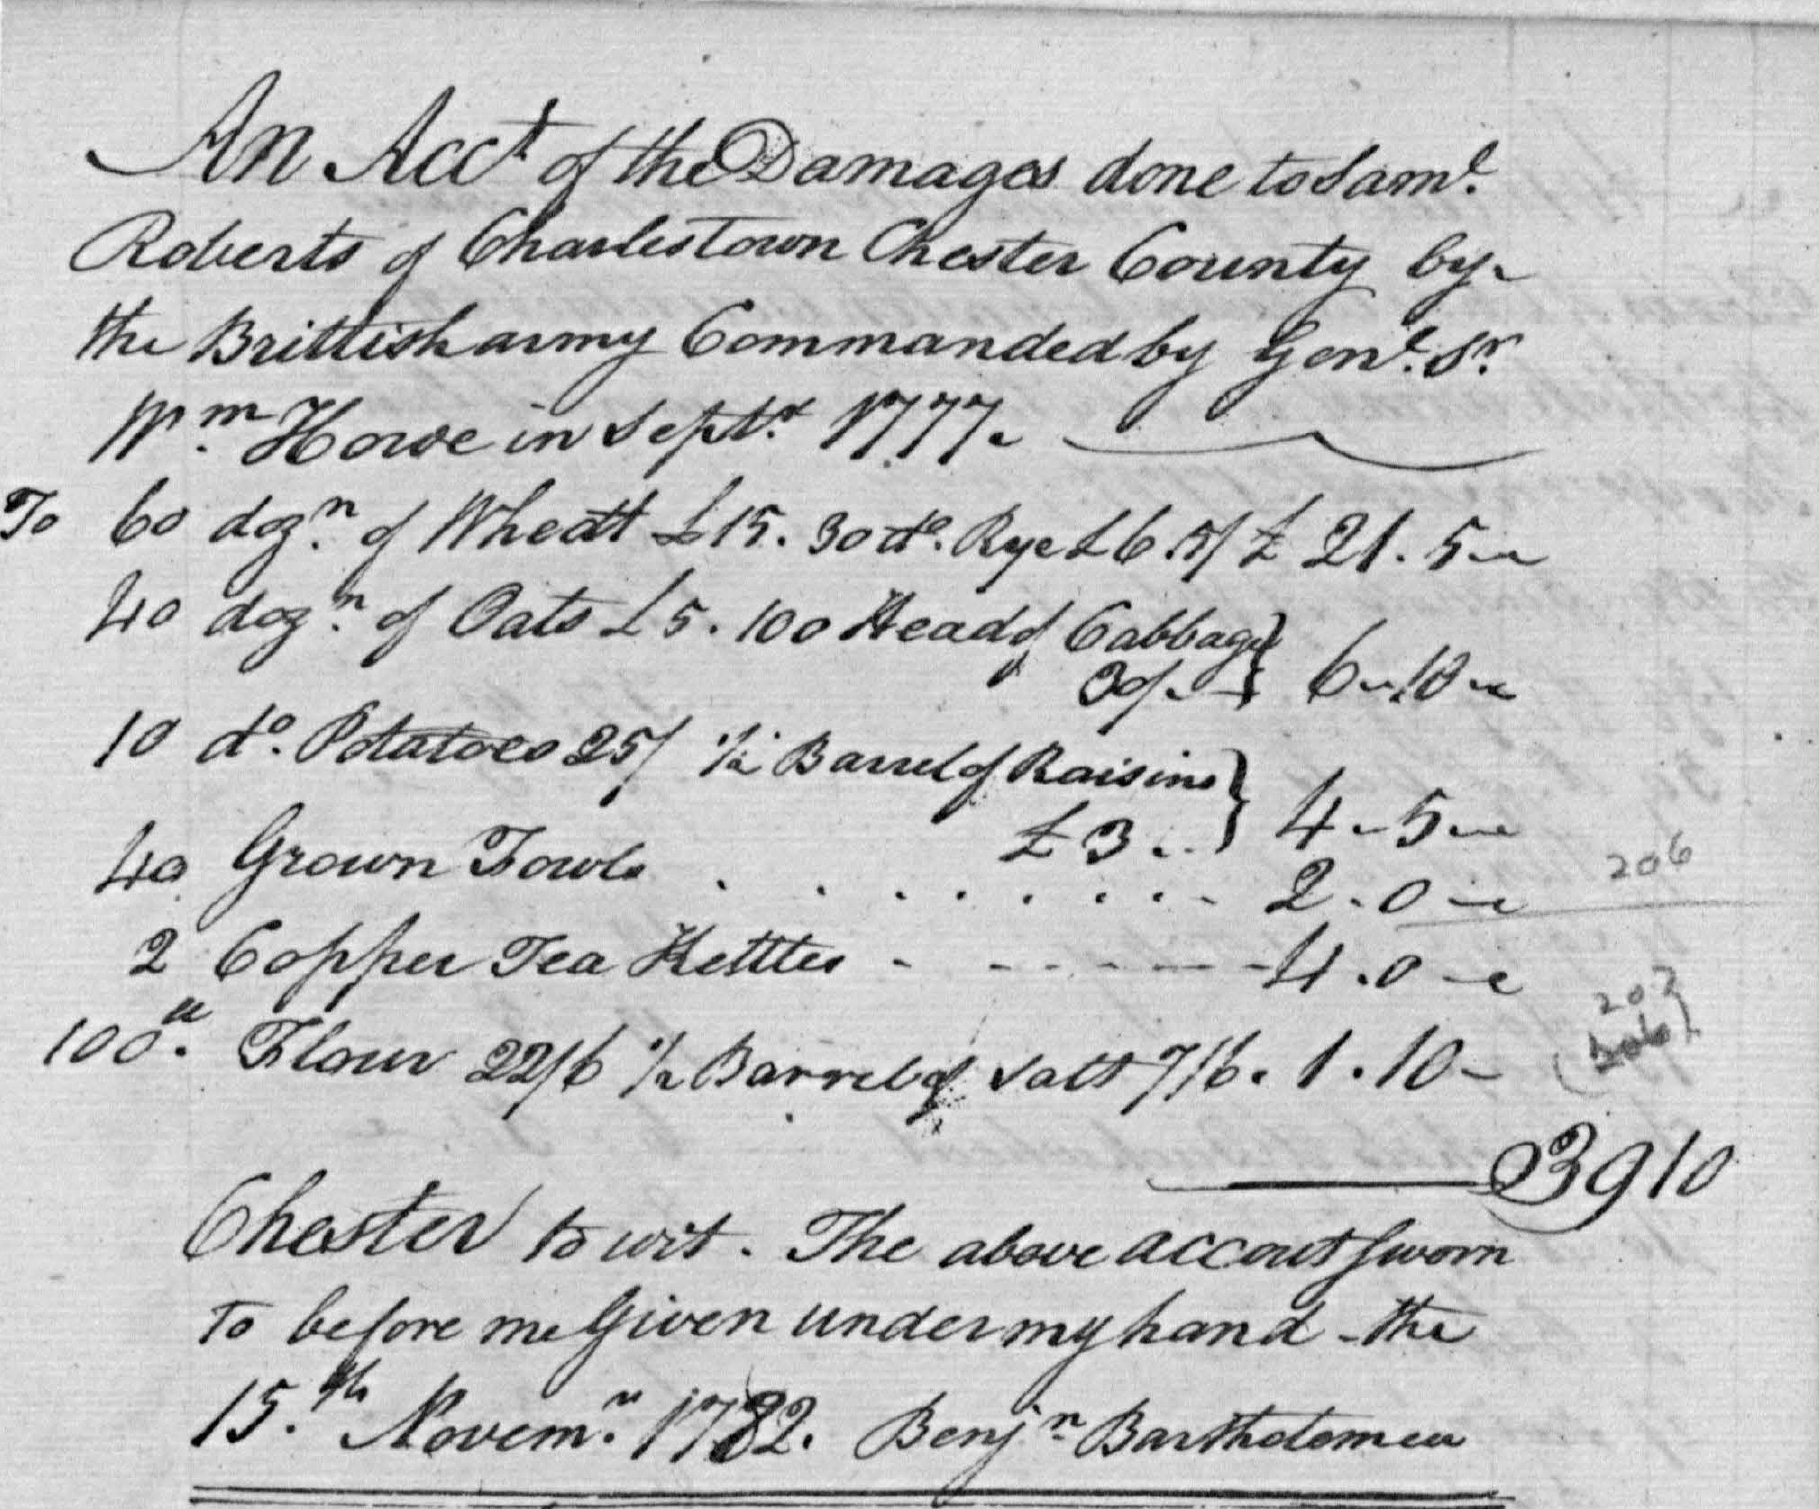 An Acct of the Damages done to Saml.
Roberts of Charlestown Chester County by
the Brittish army Commanded by Genl. Sr.
Wm. Howe in Septr. 1777.
To 60 dozn. of Wheatt £15. 30 do. Rye £6.5/ £ 21.5--
40 dozn. of Oats £5. 100 Head of Cabbage }
30/. - } 6--10--
10 do. Potatoes 25/ 1/2 Barrel of Raisins }
£3 .. } 4--5--
40 Grown Fowls . . . . . . . . 2.0--
206
2 Copper Tea Kettles - - - - - - - 4.0--
203
100u. Flour 22/6 1/2 Barrel of Salt 7/6. 1.10-
(206)
3910
Chester to wit. The above accout sworn
to before me Given under my hand the
15.th Novemr. 1782. Benjn. Bartholomew